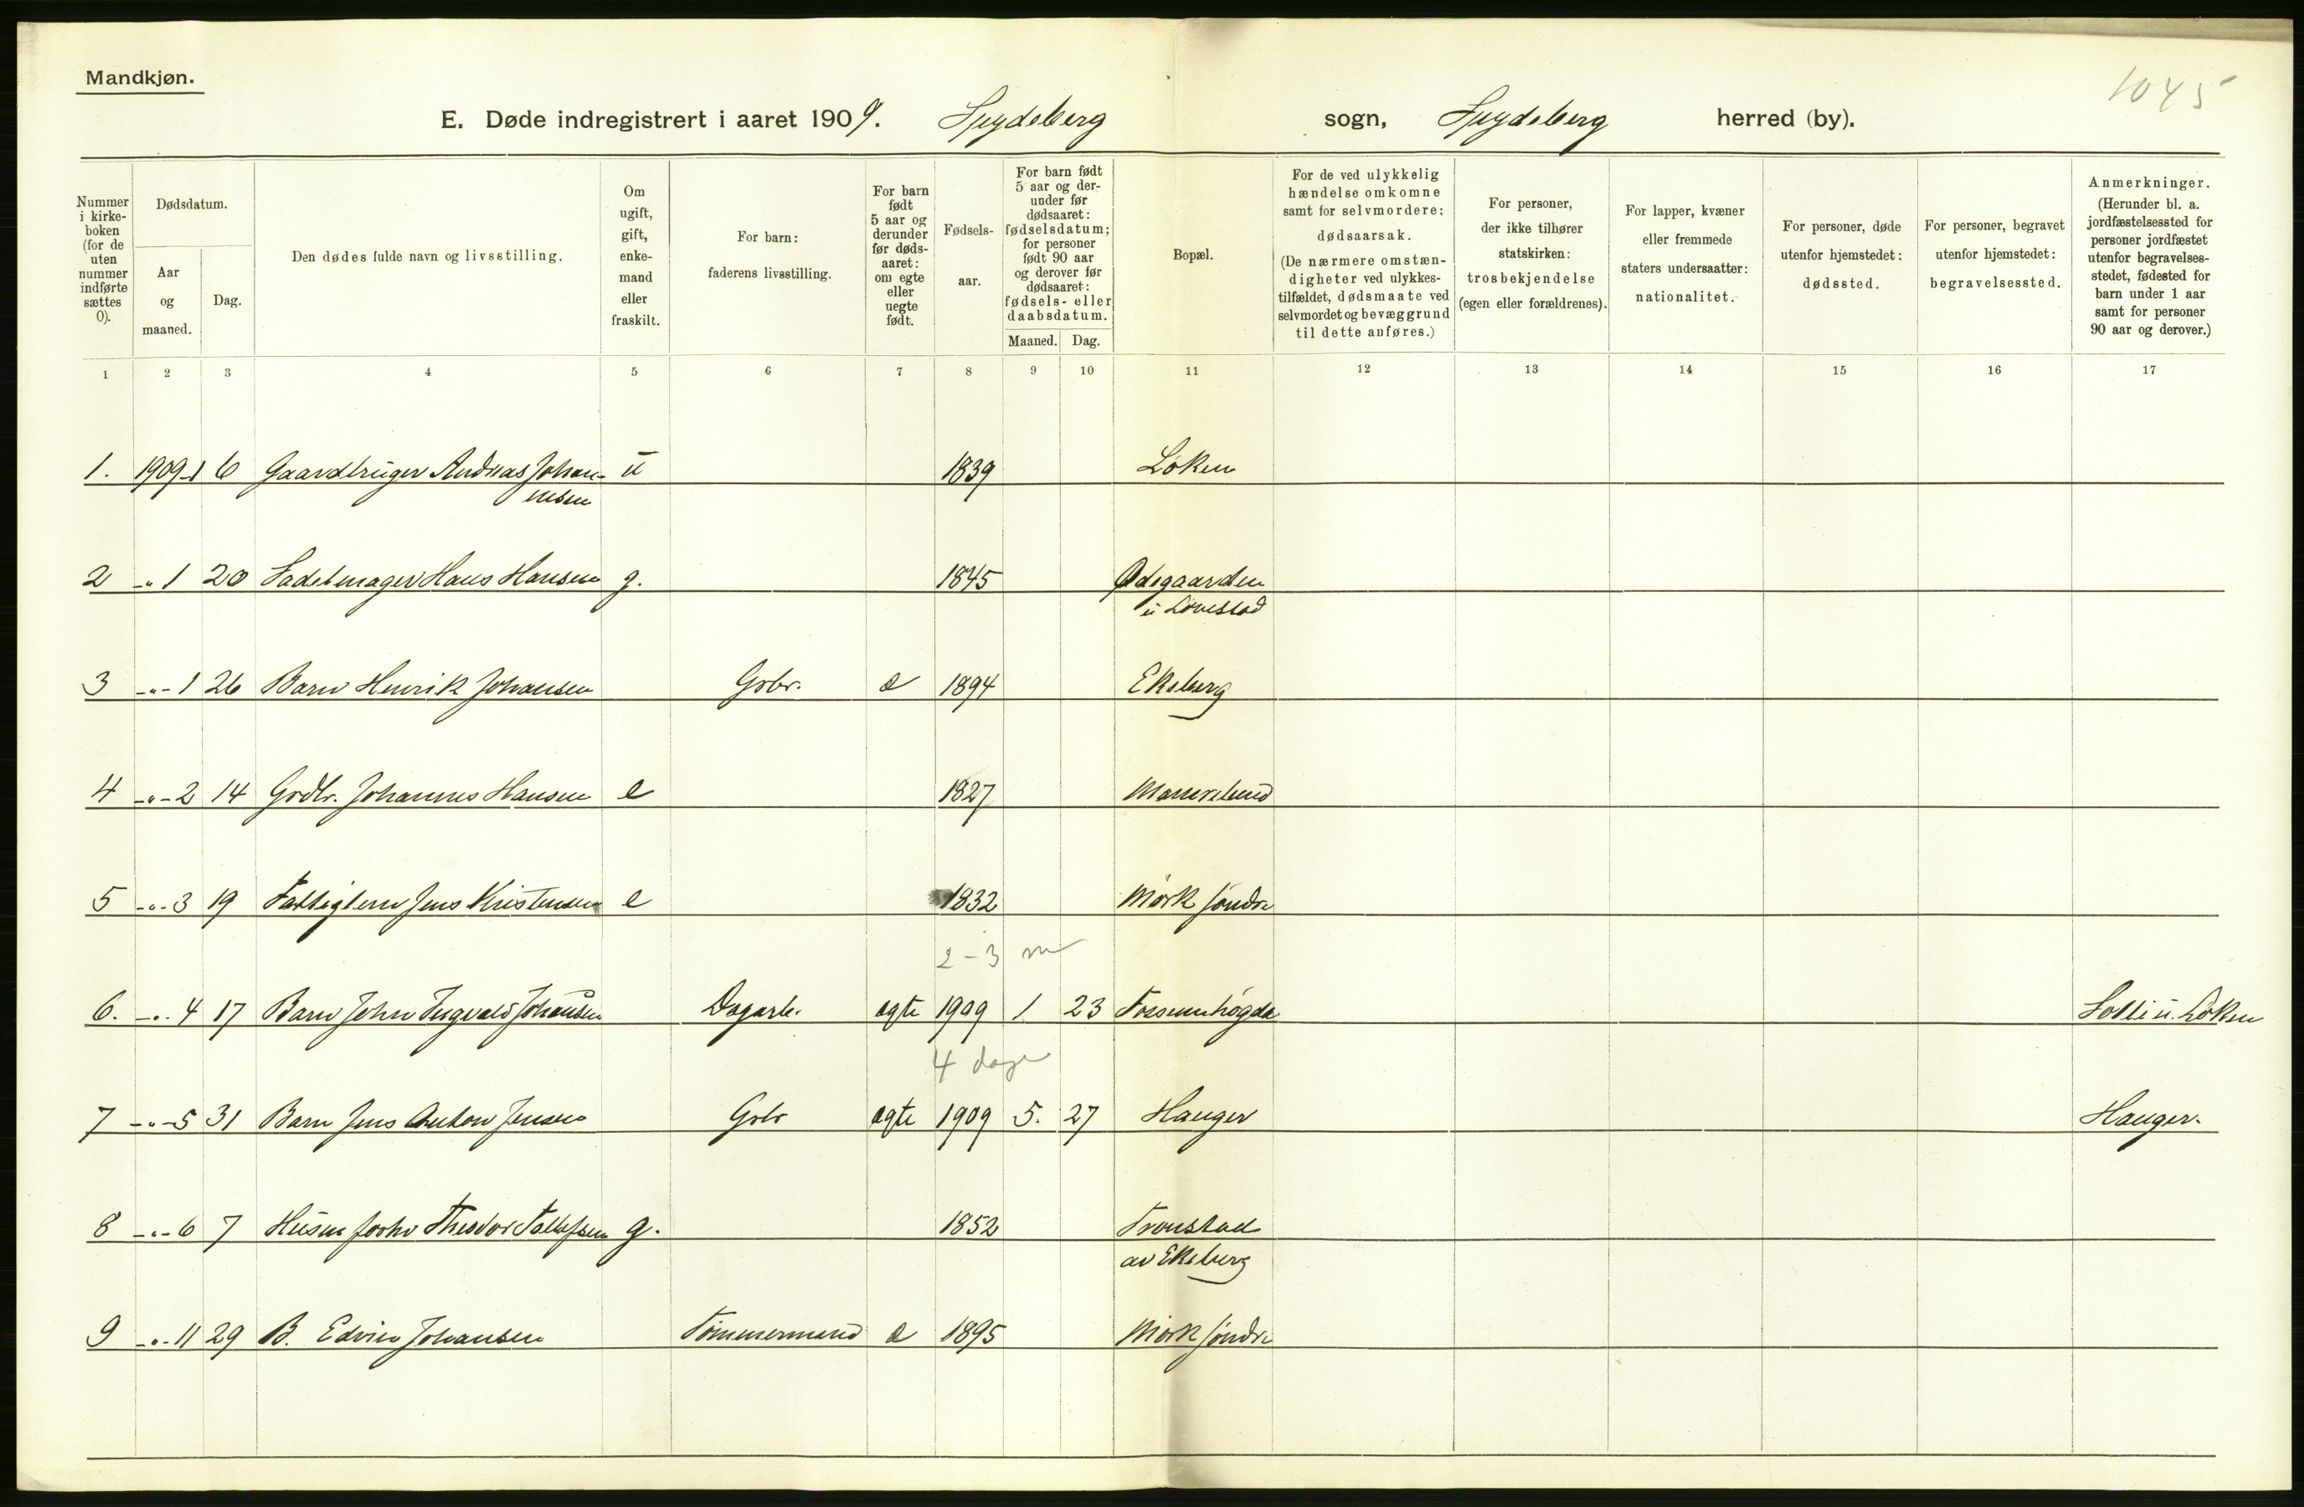 Mandkjøn.
1045
E. Døde indregistrert i aaret 1909. Spydeberg sogn, Spydeberg herred (by).
Nummer i kirke-boken (for de uten nummer indførte sættes 0).
Dødsdatum.
Aar og maaned.
Dag.
Den dødes fulde navn og livsstilling.
Om ugift, gift, enke-mand eller fraskilt.
For barn: faderens livsstilling.
For barn født 5 aar og derunder før døds-aaret: om egte eller uegte født.
Fødsels-aar.
For barn født 5 aar og der-under før dødsaaret: fødselsdatum; for personer født 90 aar og derover før dødsaaret: fødsels- eller daabsdatum.
Maaned. Dag.
Bopæl.
For de ved ulykkelig hændelse omkomne samt for selvmordere: dødsaarsak. (De nærmere omstæn-digheter ved ulykkes-tilfældet, dødsmaate ved selvmordet og bevæggrund til dette anføres.)
For personer, der ikke tilhører statskirken: trosbekjendelse (egen eller forældrenes).
For lapper, kvæner eller fremmede staters undersaatter: nationalitet.
For personer, døde utenfor hjemstedet: dødssted.
For personer, begravet utenfor hjemstedet: begravelsessted.
Anmerkninger. (Herunder bl. a. jordfæstelsessted for personer jordfæstet utenfor begravelses-stedet, fødested for barn under 1 aar samt for personer 90 aar og derover.)
1 2 3 4 5 6 7 8 9 10 11 12 13 14 15 16 17
1. 1909-1 6 Gaardbruger Andreas Johan- u 1839 Løken
nsen
2 -"-1 20 Sadelmager Hans Hansen g. 1845 Ødegaarden
u Lovestad
3 -"-1 26 Barn Henrik Johansen Gbr. 1894 Ekeberg
4 -"-2 14 Grdbr. Johannes Hansen e 1827
5 -"-3 19 Fattiglem Jens Kristensen e 1832 Mørk søndre
2-3 m
6. -"-4 17 Barn John Ingvald Johansen Dagarb. egte 1909 1 23 Fossumhøgda Solli u. Løken
4 dage
7 -"-5 31 Barn Jens Anton Jensen Gbr egte 1909 5. 27 Hauger Hauger.
8 -"-6 7 Husm forhv Theodor Tollefsen g. 1852 Tronstad
av Ekeberg
9 -"-11 29 B. Edvin Johansen Tømmermand 1895 Mørk søndre